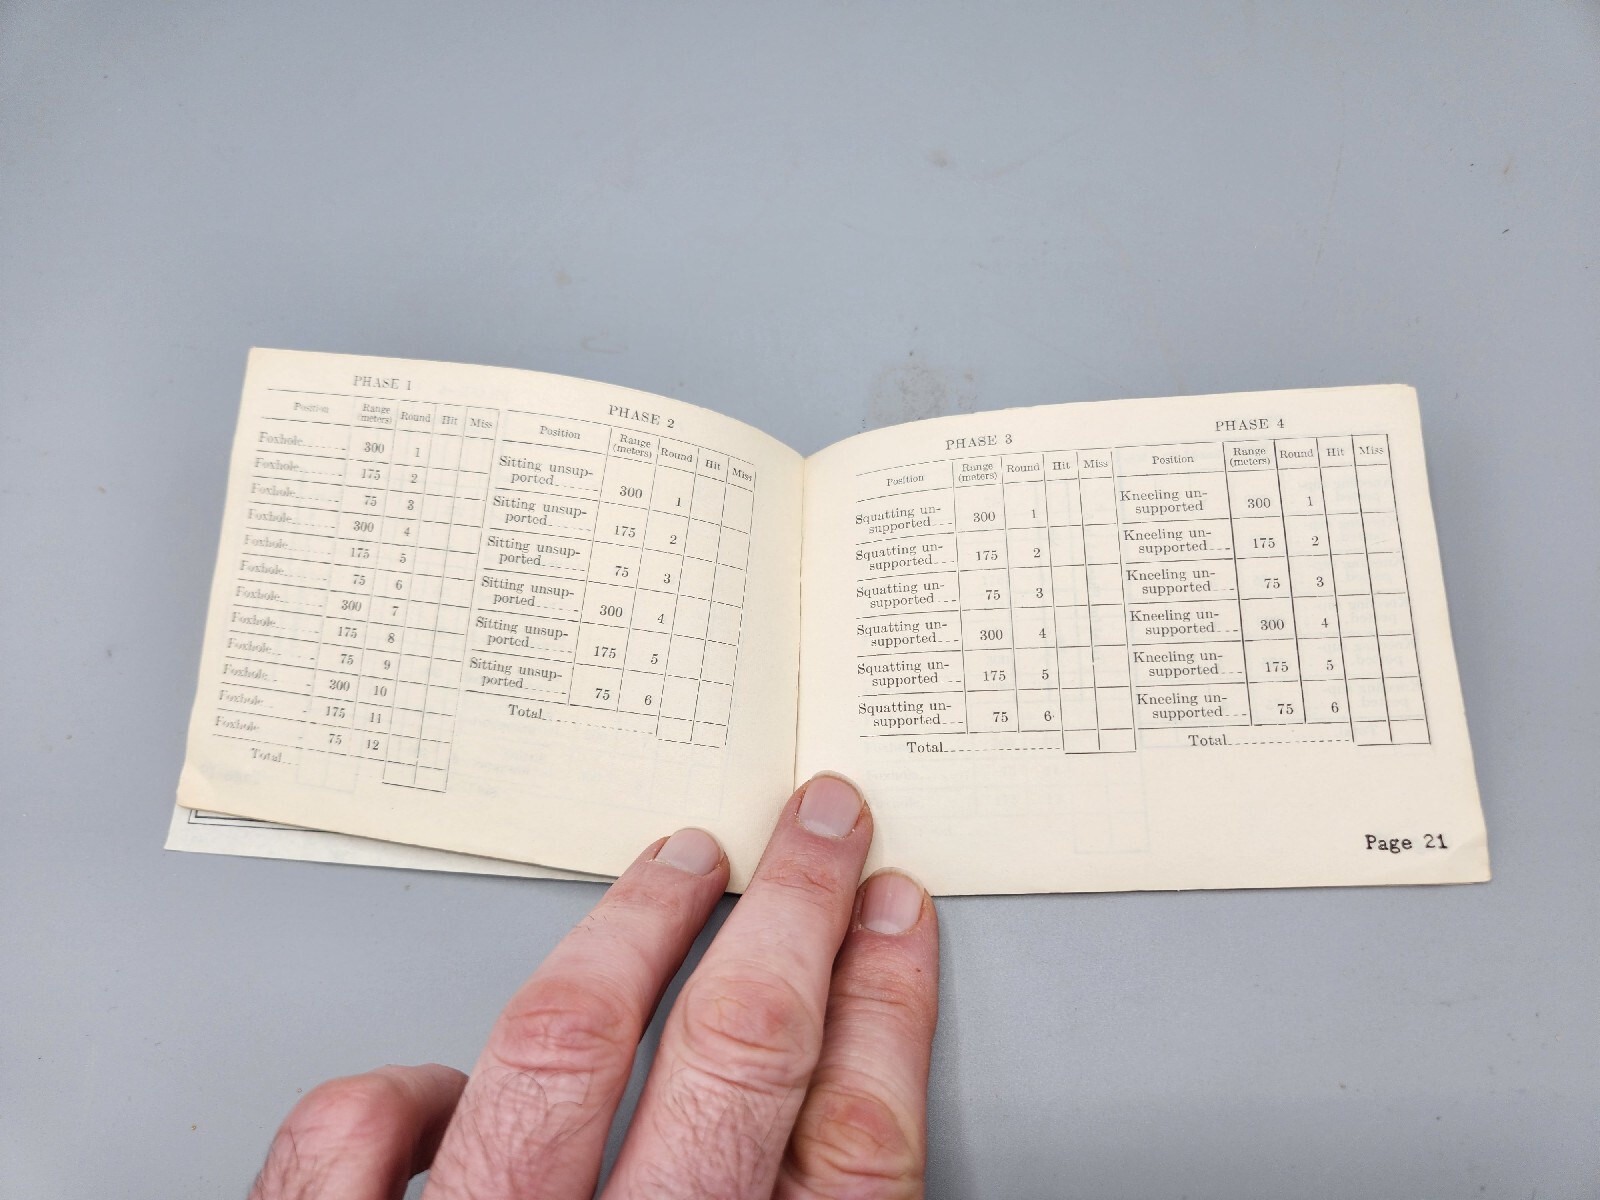 PHASE 1
Position Range (meters) Round Hit Miss
Foxhole 300 1
Foxhole 175 2
Foxhole 75 3
Foxhole 300 4
Foxhole 175 5
Foxhole 75 6
Foxhole 300 7
Foxhole 175 8
Foxhole 75 9
Foxhole 300 10
Foxhole 175 11
Foxhole 75 12
Total
PHASE 2
Position Range (meters) Round Hit Miss
Sitting unsup-
ported 300 1
Sitting unsup-
ported 175 2
Sitting unsup-
ported 75 3
Sitting unsup-
ported 300 4
Sitting unsup-
ported 175 5
Sitting unsup-
ported 75 6
Total
PHASE 3
Position Range (meters) Round Hit Miss
Squatting un-
supported 300 1
Squatting un-
supported 175 2
Squatting un-
supported 75 3
Squatting un-
supported 300 4
Squatting un-
supported 175 5
Squatting un-
supported 75 6
Total
PHASE 4
Position Range (meters) Round Hit Miss
Kneeling un-
supported 300 1
Kneeling un-
supported 175 2
Kneeling un-
supported 75 3
Kneeling un-
supported 300 4
Kneeling un-
supported 175 5
Kneeling un-
supported 75 6
Total
Page 21